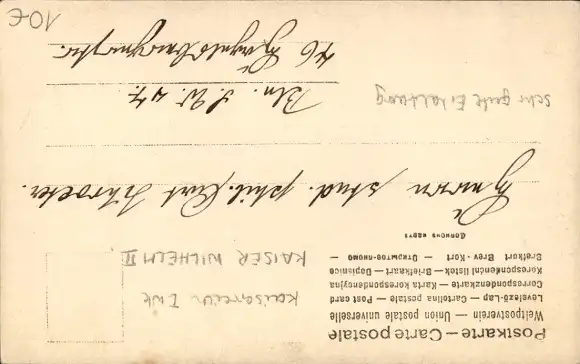 Postkarte — Carte postale
Weltpostverein — Union postale universelle
Levelező-Lap — Cartolina postale — Post card
Correspondenzkarte — Karta korespondencyjna
Korespondenční lístek — Briefkaart — Dopisnice
Brefkort Brev-Kort — Открытое письмо —
KAISER WILHELM II
Herrn stud. phil. Kurt Schroeter.
sehr gute Erhaltung
Bln. S.W. 47.
46
10€